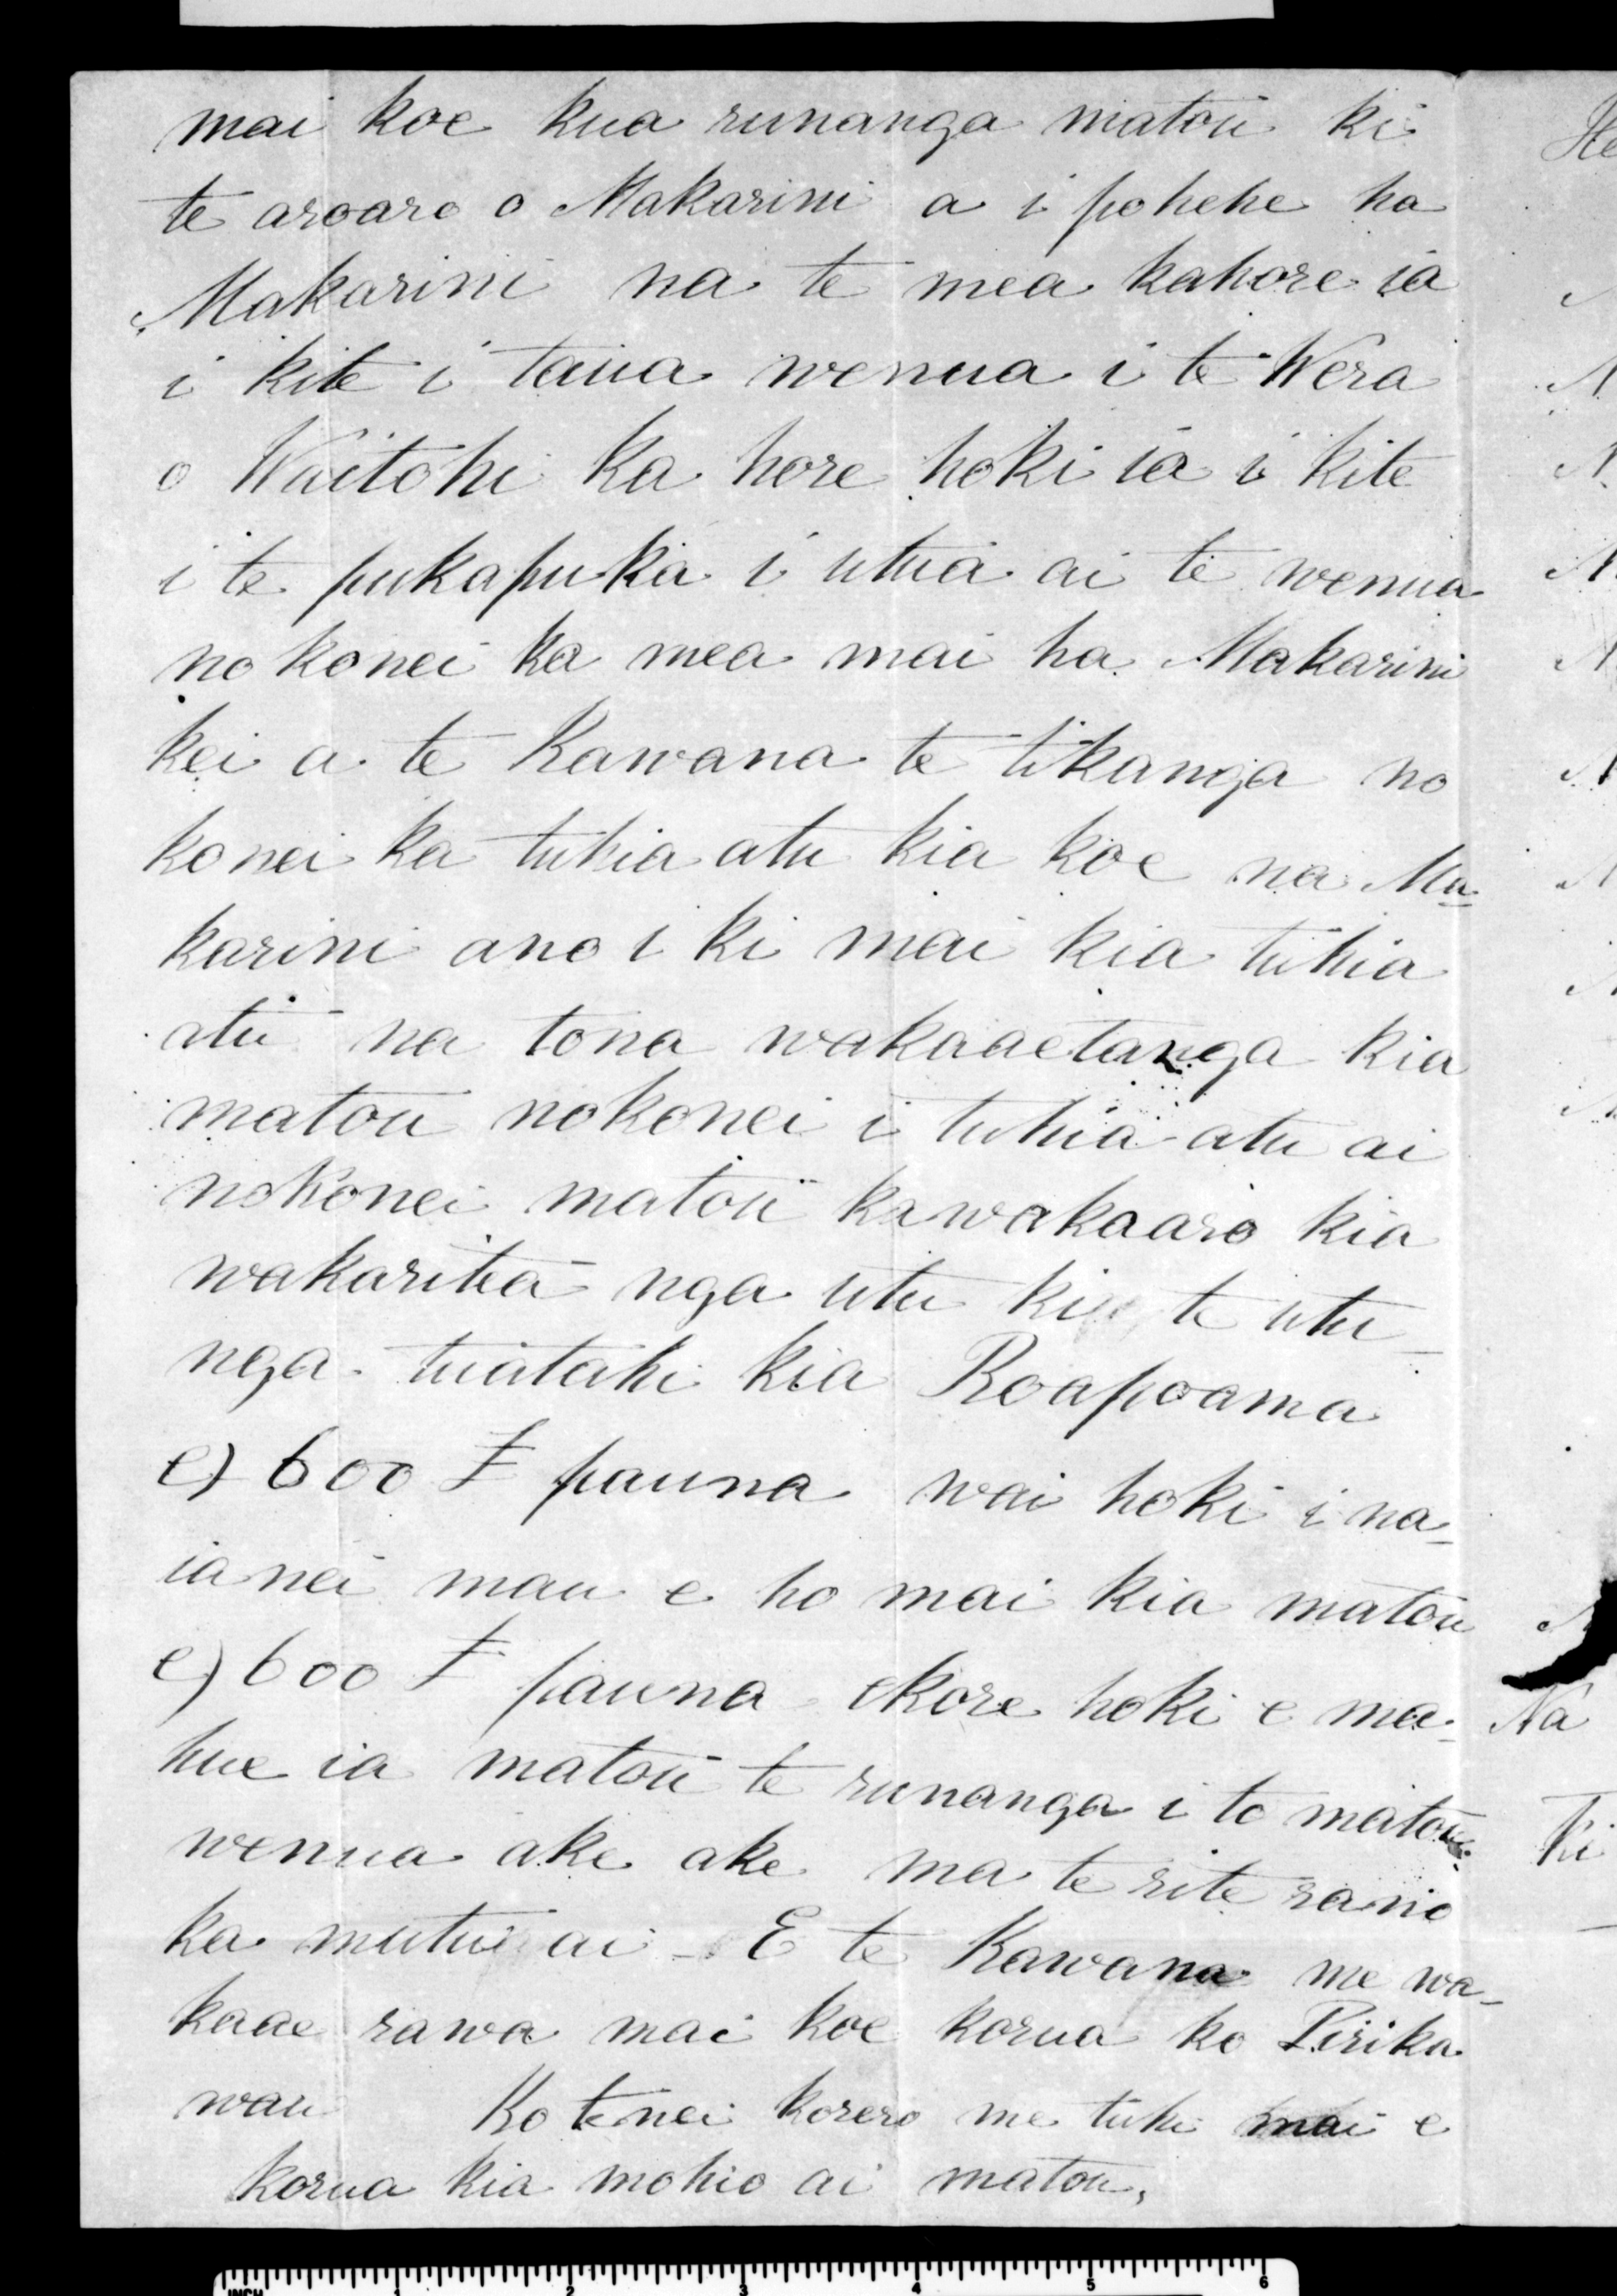 mai koe kua runanga matou ki
te aroaro o Makarini a i pohehe ha
Makarini na te mea kahore ia
i kite i taua wenua i te Wera
o Waitohi ka hore hoki ia i kite
i te pukapuka i utua ai te wenua
no konei ka mea mai ha Makarini
kei a te Kawana te tikanga no
konei ka tuhia atu kia koe na Ma-
karini ano i ki mai kia tuhia
atu na tona wakaaetanga kia
matou nokonei i tuhia atu ai
nokonei matou ka wakaaro kia
wakaritea nga utu ki te utu-
nga tuatahi kia Roapoama
e) 600 £ pauna wai hoki i na-
ia nei mau e ho mai kia matou
e) 600 £ pauna ekore hoki e ma-
hue ia matou te runanga i to matou
wenua ake ake ma te rite rano
ka mutu ai - E te Kawana me wa-
kaae rawa mai koe korua ko Pirika
wau Ko tenei korero me tuhi mai e
korua kia mohio ai matou,
He
Na
Ki
INCH 1 2 3 4 5 6